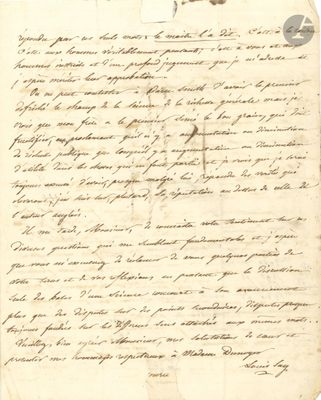 répondre par ces seuls mots : le maître l'a dit. C'est à la
C'est aux hommes véritablement pensant, c'est à vous et aux
hommes instruits et d'un profond jugement que je m'adresse et
j'espère mériter leur approbation.
On ne peut contester à Adam Smith d'avoir le premier
défriché le champ de la science de la richesse générale mais je
crois que mon frère a le premier semé le bon grain, qui doit
fructifier, en proclamant qu'il n'y a augmentation ou diminution
de richesse publique que lorsqu'il y a augmentation ou diminution
d'utilité dans les choses qui en font partie et je crois que je serai
toujours
j'en suis sûr, plus tard, sa réputation au dessus de celle de
l'auteur anglais.
Il me tarde, Monsieur, de connaître votre sentiment sur les
diverses questions qui me semblent fondamentales et j'espère
que vous m'excuserez de réclamer de vous quelques parties de
votre tems et de vos réflexions en pensant que la discussion
seule des bases d'une science concourt à son avancement
plus que des disputes sur des points secondaires, disputes presque
toujours fondées sur les différens sens attachés aux mêmes mots.
Veuillez, bien agréer Monsieur, mes salutations de cœur et
présenter mes hommages respectueux à Madame Dunoyer
Louis Say